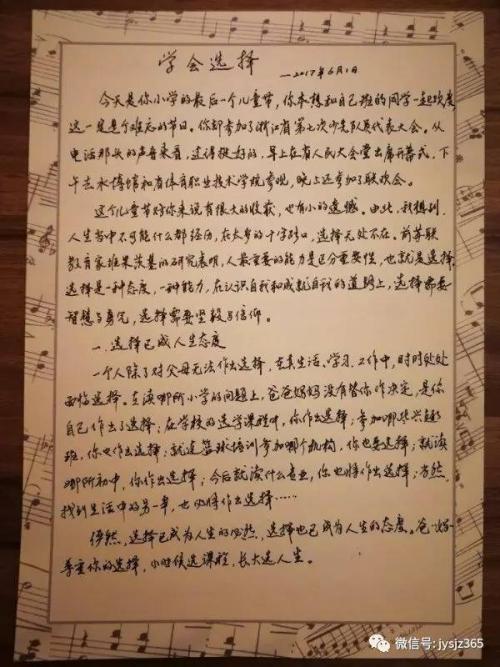 学会选择
—2017年6月1日
今天是你小学的最后一个儿童节，你本想和自己班的同学一起欢度，
这一定是个难忘的节日。你却参加了浙江省第七次少先队员代表大会。从
电话那头的声音来看，过得挺好的，早上在省人民大会堂出席开幕式，下
午去水博馆和省体育职业技术学院参观，晚上还参加了联欢会。
这个儿童节对你来说有很大的收获，也有小的遗憾。由此，我想到，
人生当中不可能什么都经历，在太多的十字路口，选择无处不在，前苏联
教育家班杰茨基的研究表明，人最重要的能力是区分重要性，也就是选择，
选择是一种态度，一种能力，在认识自我和成就自我的道路上，选择需要
智慧与勇气，选择需要坚毅与信仰。
一、选择已成人生态度
一个人除了对父母无法作出选择，在其生活、学习、工作中，时时处处
面临选择。在读哪所小学的问题上，爸爸妈妈没有替你作决定，是你
自己作出了选择；在学校的选学课程中，你作出选择；参加哪些兴趣
班，你也作出选择；就连篮球培训参加哪个机构，你也要选择；就读
哪所初中，你作出选择；今后就读什么专业，你也将作出选择；当然，
找到生活中的另一半，也必将作出选择……
俨然，选择已成为人生的必然，选择也已成为人生的态度。爸妈
尊重你的选择，小时候选课程，长大选人生。
微信号: jysjz365